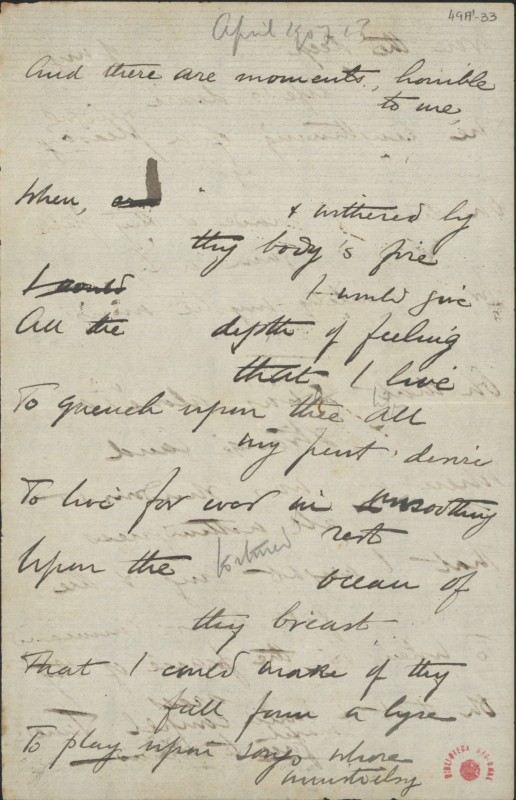 49A¹-33
April 1907
And there are moments, horrible
to me,
When, & withered by
thy body's fire
I would I would give
All the depth of feeling
that I live
To quench upon thee all
my pent desire
To live for ever in unsoothing
rest
Upon the tortured ocean of
thy breast
That I could make of thy
full form a lyre
To play upon songs whose
BIBLIOTECA NACIONAL